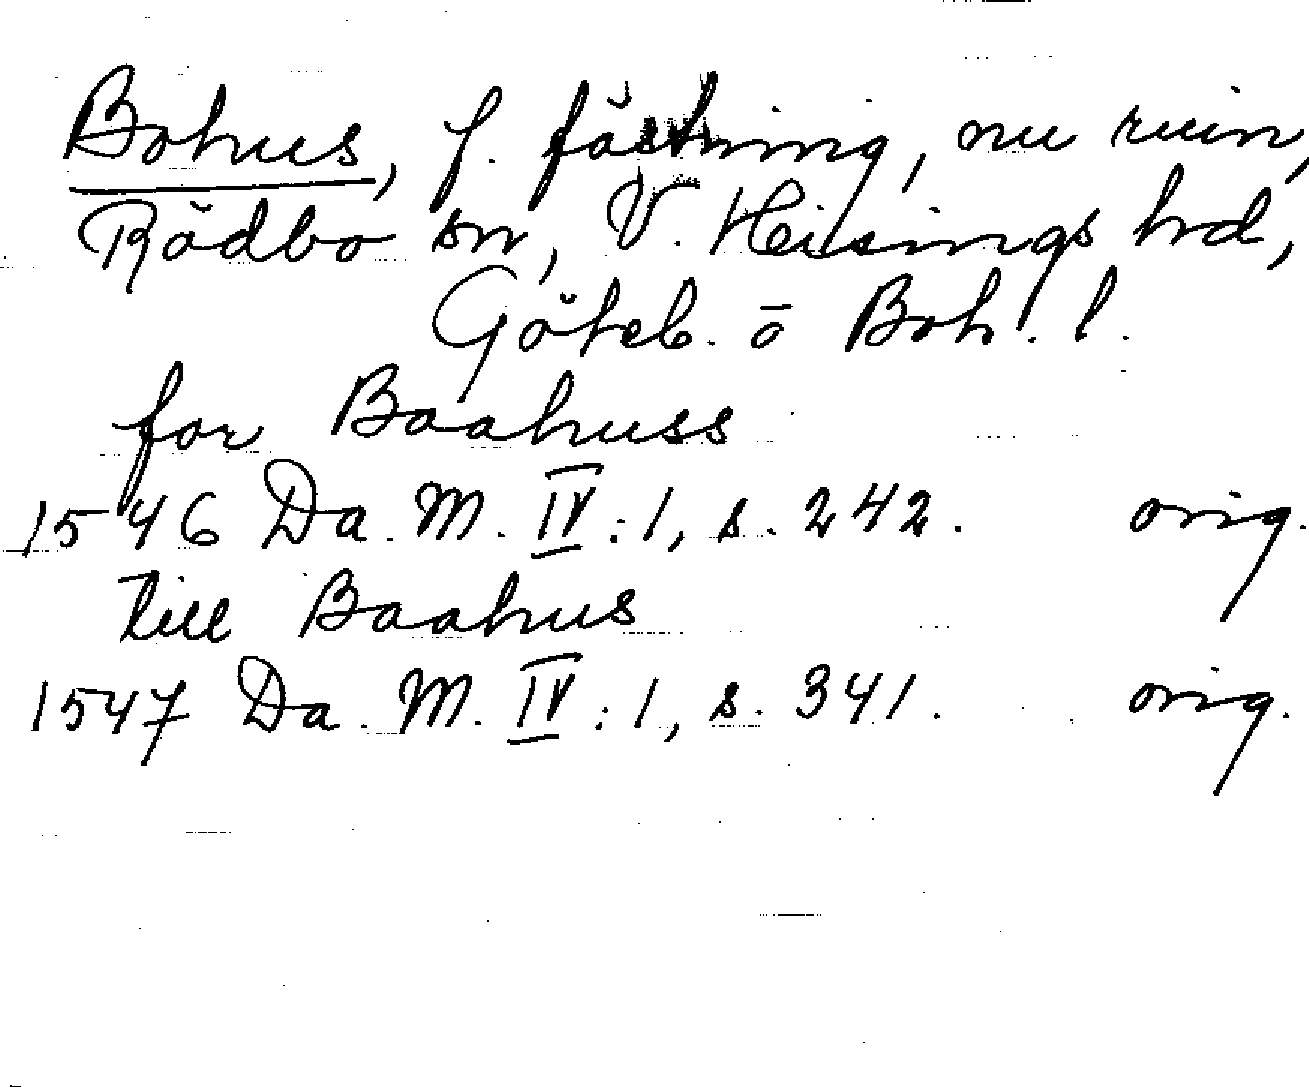 Bohus, f. fästning, nu ruin,
Rödbo sn, V. Hisings hd,
Göteb. o Boh. l.
for Baahuss
1546 Da. M. IV:1, s. 242. orig.
till Baahus
1547 Da. M. IV:1, s. 341. orig.